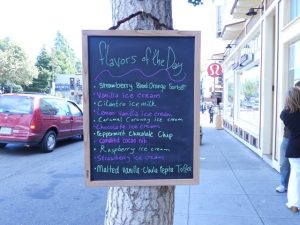 Flavors of the Day
Strawberry Blood Orange Sorbet
Vanilla ice cream
Cilantro ice milk
Lemon Vanilla ice cream
Caramel ice cream
Chocolate ice cream
Peppermint Chocolate Chip
candied cocoa nib
Raspberry ice cream
Strawberry ice cream
Malted Vanilla-Chula Pepita Toffee